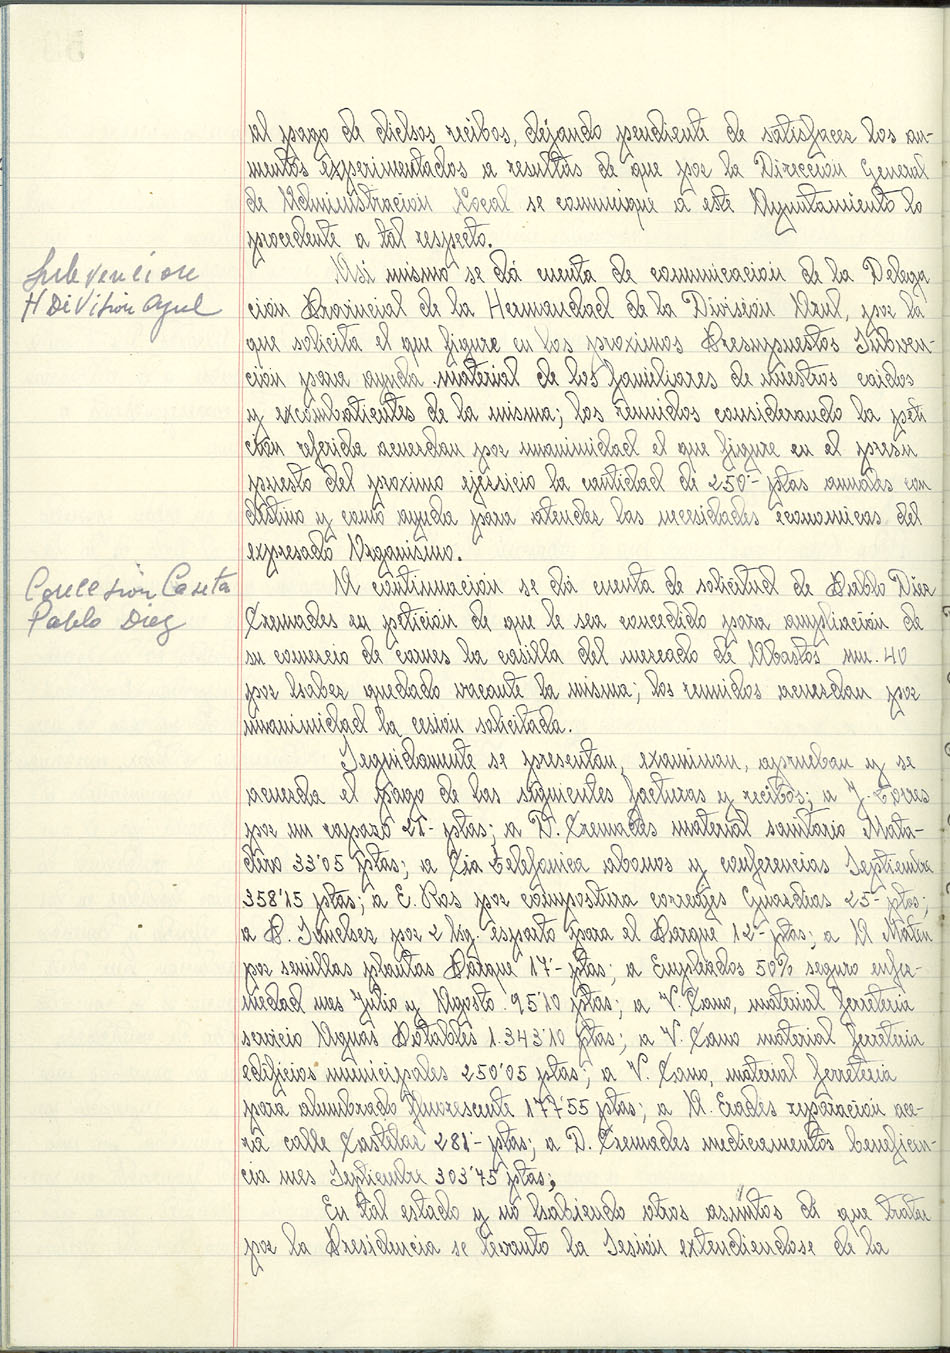 al pago de dichos recibos, dejando pendiente de satisfacer los au-
mentos experimentados a resultas de que por la Dirección General
de Administración Local se comunique a este Ayuntamiento lo
procedente a tal respecto.
Subvencion
H División Azul
Asi mismo se dá cuenta de comunicación de la Delega
ción Provincial de la Hermandad de la División Azul, por la
que solicita el que figure en los proximos Presupuestos Subven-
ción para ayuda material de los familiares de nuestros caidos
y excombatientes de la misma; los reunidos considerando la peti
ción referida acuerdan por unanimidad el que figure en el presu
puesto del proximo ejercicio la cantidad de 250'- ptas anuales con
destino y como ayuda para atender las necesidades economicas del
expresado Organismo.
Concesion Caseta
Pablo Diez
A continuación se dá cuenta de solicitud de Pablo Diez
Cremades en petición de que le sea concedido para ampliación de
su comercio de carnes la casilla del mercado de Abastos num. 40
por haber quedado vacante la misma; los reunidos acuerdan por
unanimidad la cesión solicitada.
Seguidamente se presentan, examinan, aprueban y se
acuerda el pago de las siguientes facturas y recibos; a J. Torres
por un repaso 21'- ptas; a D. Cremades material sanitario Mata-
dero 33'05 ptas; a Cia Telefonica abonos y conferencias Septiembre
358'15 ptas; a E. Ros por compostura correajes Guardias 25'- ptas;
a P. Sánchez por 2 kg. esparto para el Parque 12'- ptas; a A Maten
por semillas plantas Parque 17'- ptas; a Empleados 50% seguro enfer-
medad mes Julio y Agosto 95'10 ptas; a V. Cano, material ferreteria
servicio Aguas Potables 1.343'10 ptas; a V. Cano material ferreteria
edificios municipales 250'05 ptas; a V. Cano, material ferreteria
para alumbrado fluorescente 177'55 ptas; a A. Erades reparación ace-
ra calle Castelar 281'- ptas; a D. Cremades medicamentos beneficen-
cia mes Septiembre 303'75 ptas;
En tal estado y no habiendo otros asuntos dé que tratar
por la Presidencia se levantó la Sesión extendiendose de la